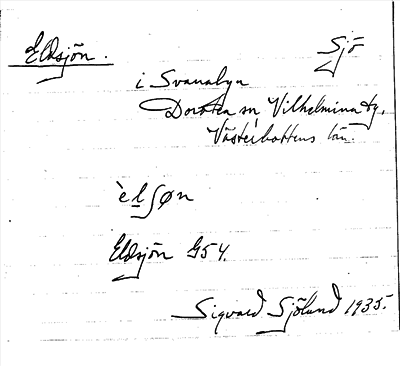 Eldsjön. Sjö
i Svanabyn
Dorotea sn Vilhelmina tg.
Västerbottens län.
èlʃøn
Eldsjön G54.
Sigvard Sjölund 1935.